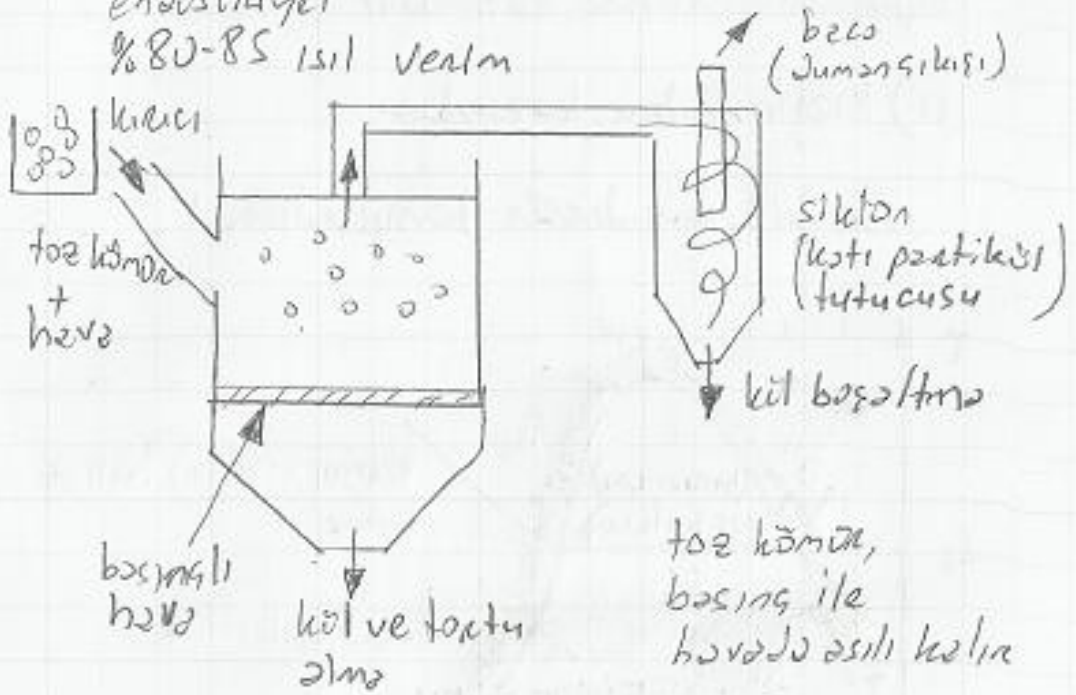 endüstriyel
%80-85 ısıl verim
kırıcı
toz kömür
+
hava
baca
(duman çıkışı)
siklon
(katı partikül
tutucusu)
kül boşaltma
basınçlı
hava
kül ve tortu
alma
toz kömür,
basınç ile
havada asılı kalır